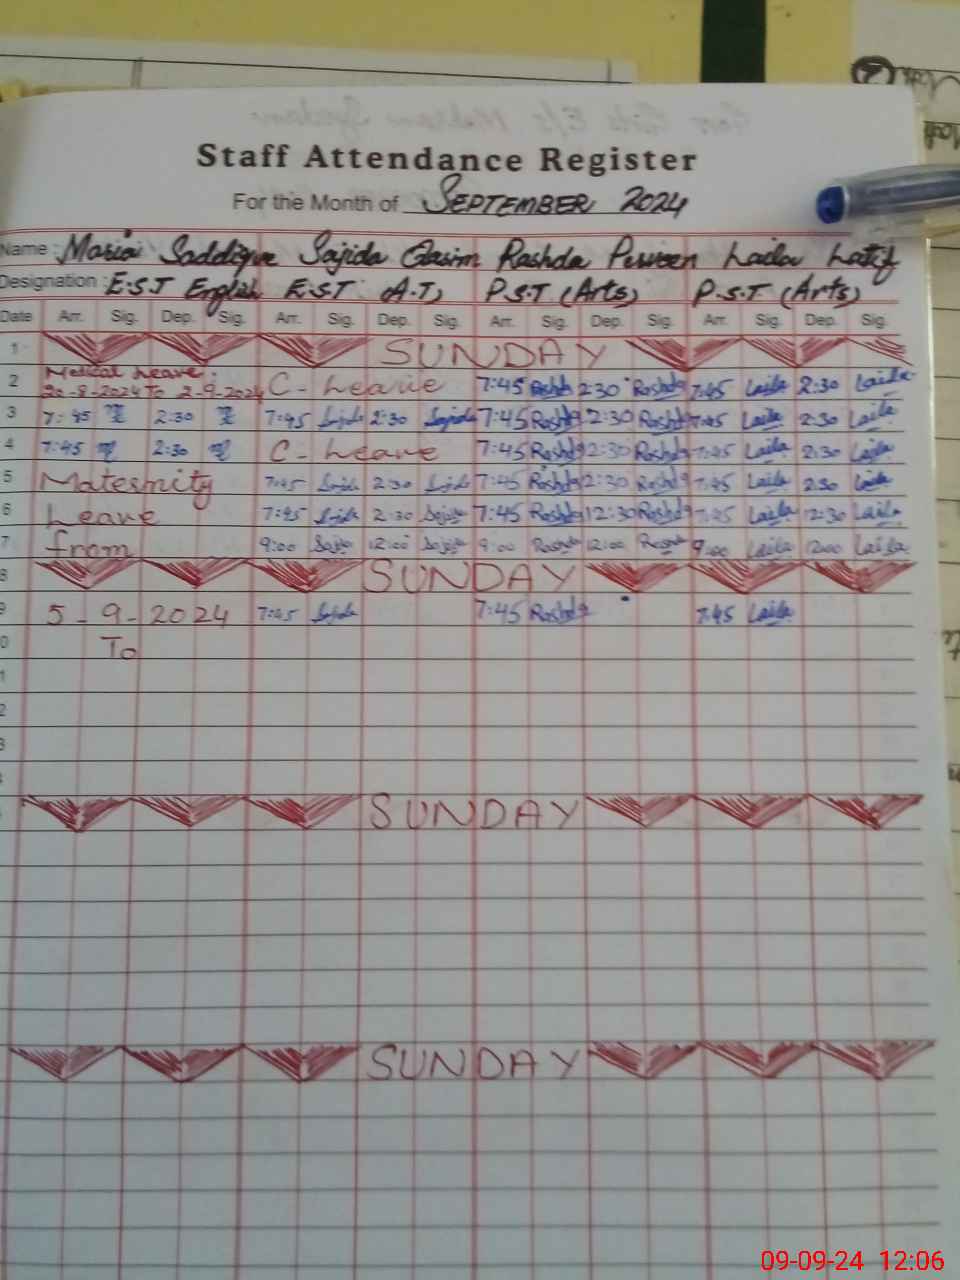 Staff Attendance Register
For the Month of SEPTEMBER 2024
Name : Maria Saddique Sajida Qasim Rashda Perveen Laila Latif
Designation : E.S.T English E.S.T (A.T) P.S.T (Arts) P.S.T. (Arts)
Date Arr. Sig. Dep. Sig. Arr. Sig. Dep. Sig. Arr. Sig. Dep. Sig. Arr. Sig. Dep. Sig.
1 SUNDAY
Medical Leave
2 30-8-2024 To 2-9-2024 C-Leave 7:45 Rashda 2:30 Rashda 7:45 Laila 2:30 Laila
3 7:45 2:30 7:45 Sajida 2:30 Sajida 7:45 Rashda 2:30 Rashda 7:45 Laila 2:30 Laila
4 7:45 2:30 C-Leave 7:45 Rashda 2:30 Rashda 7:45 Laila 2:30 Laila
5 Maternity 7:45 Sajida 2:30 Sajida 7:45 Rashda 2:30 Rashda 7:45 Laila 2:30 Laila
6 Leave 7:45 Sajida 2:30 Sajida 7:45 Rashda 12:30 Rashda 7:45 Laila 12:30 Laila
7 from 9:00 Sajida 12:00 Sajida 9:00 Rashda 12:00 Rashda 9:00 Laila 12:00 Laila
8 SUNDAY
9 5-9-2024 7:45 Sajida 7:45 Rashda 7:45 Laila
0 To
1
2
3
SUNDAY
SUNDAY
09-09-24 12:06